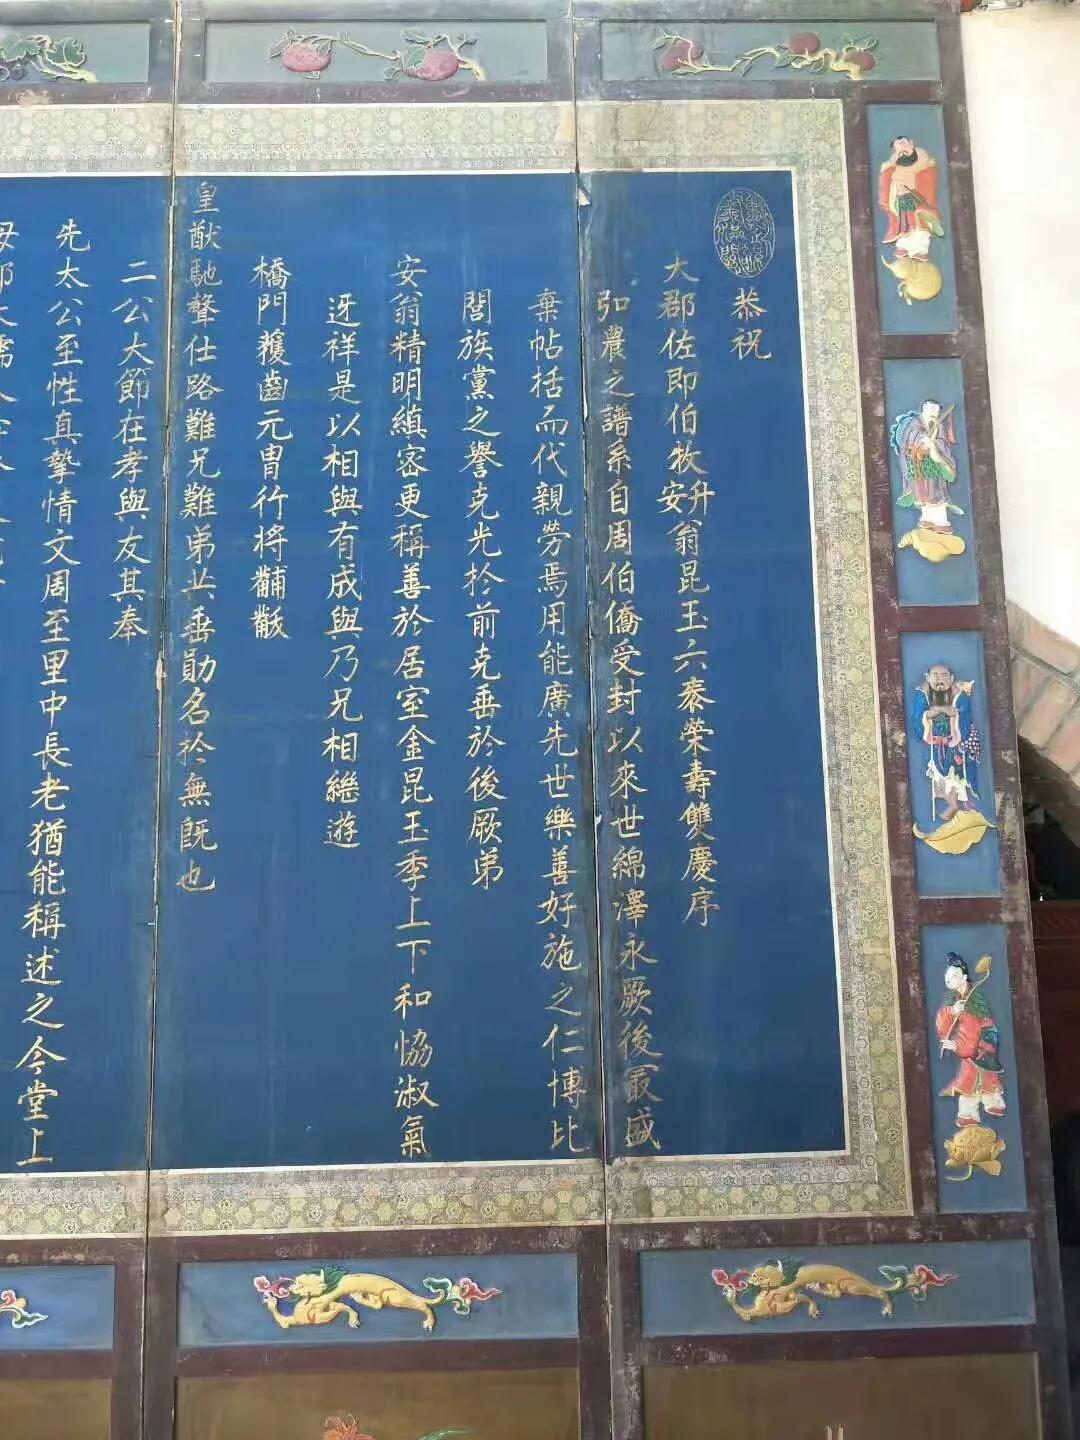 恭祝
大郡佐即伯牧升安翁昆玉六袠榮壽雙慶序
弘農之譜系自周伯僑受封以來世綿澤永厥後最盛
棄帖括而代親勞焉用能廣先世樂善好施之仁博比
閭族黨之譽克光於前克垂於後厥弟
安翁精明縝密更稱善於居室金昆玉季上下和協淑氣
迓祥是以相與有成與乃兄相繼遊
橋門蒦齒元冑行將黼黻
皇猷馳聲仕路難兄難弟共垂勛名於無既也
二公大節在孝與友其奉
先太公至性真摯情文周至里中長老猶能稱述之今堂上